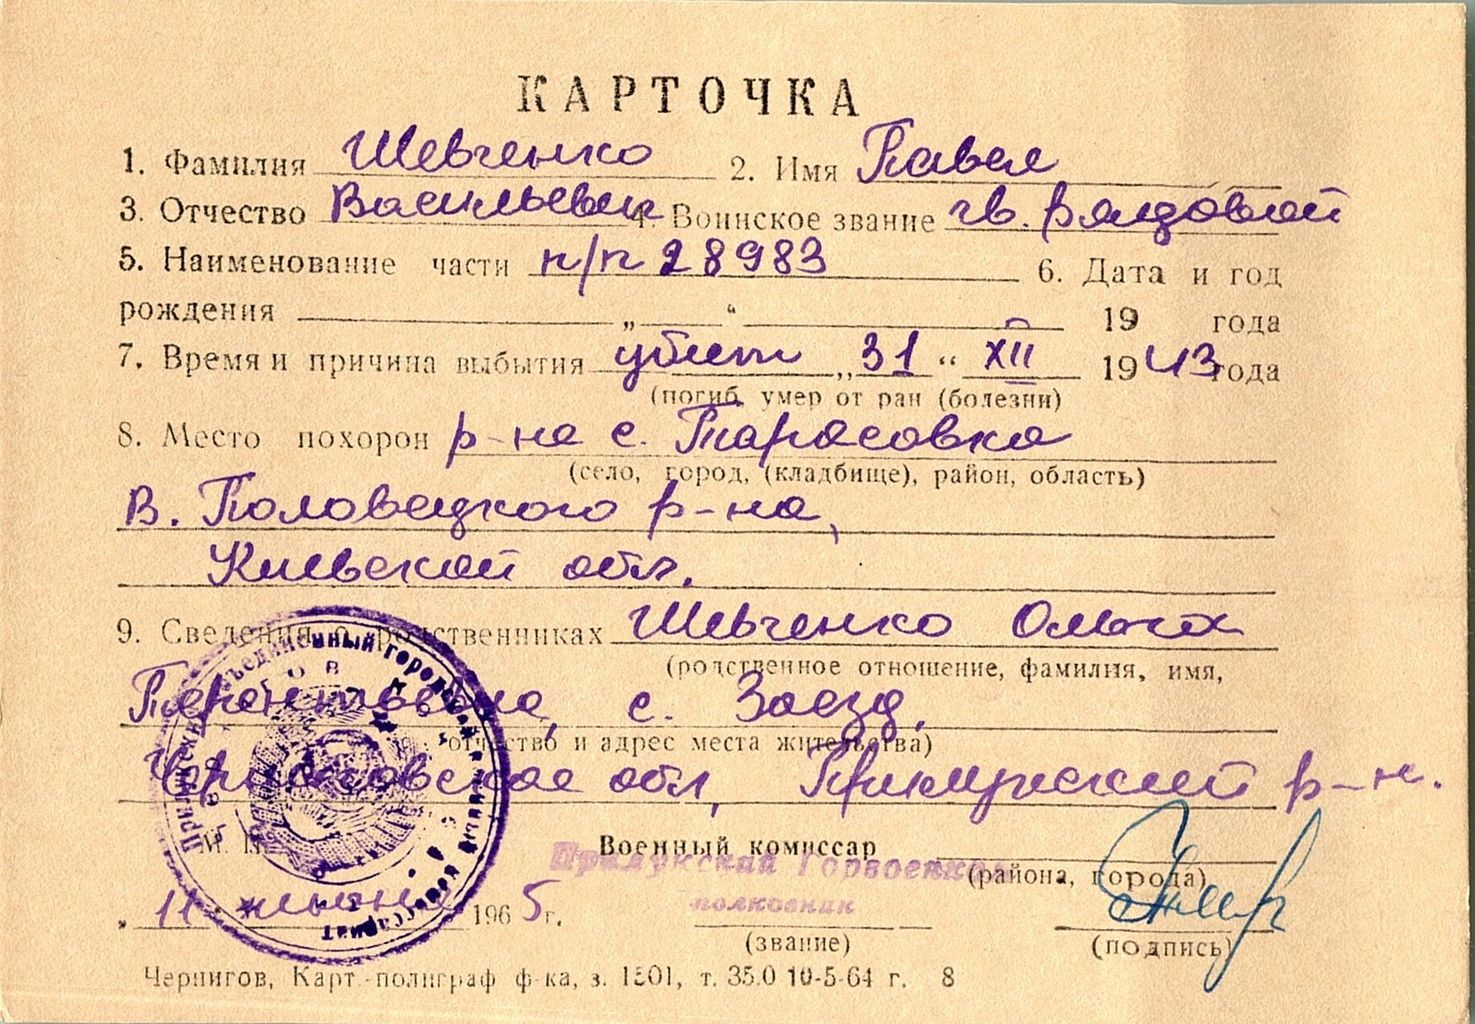 КАРТОЧКА
1. Фамилия Шевченко 2. Имя Павел
3. Отчество Васильевич 4. Воинское звание гв. рядовой
5. Наименование части п/п 28983 6. Дата и год
рождения „ “ 19 года
7. Время и причина выбытия убит „31“ XII 1943 года
(погиб, умер от ран (болезни)
8. Место похорон р-на с. Тарасовка
(село, город, (кладбище), район, область)
В. Половецкого р-на,
Киевской обл.
9. Сведения о родственниках Шевченко Ольга
(родственное отношение, фамилия, имя,
Терентьевна, с. Заезд,
отчество и адрес места жительства)
Черниговская обл, Прилукский р-н.
М. П. Военный комиссар
Прилукский Горвоенком
(района, города)
полковник
11 1965 г.
(звание) (подпись)
Чернигов, Карт.-полиграф ф-ка, з. 1501, т. 35.0 10-5-64 г. 8
Прилукский объединенный городской военный комиссариат